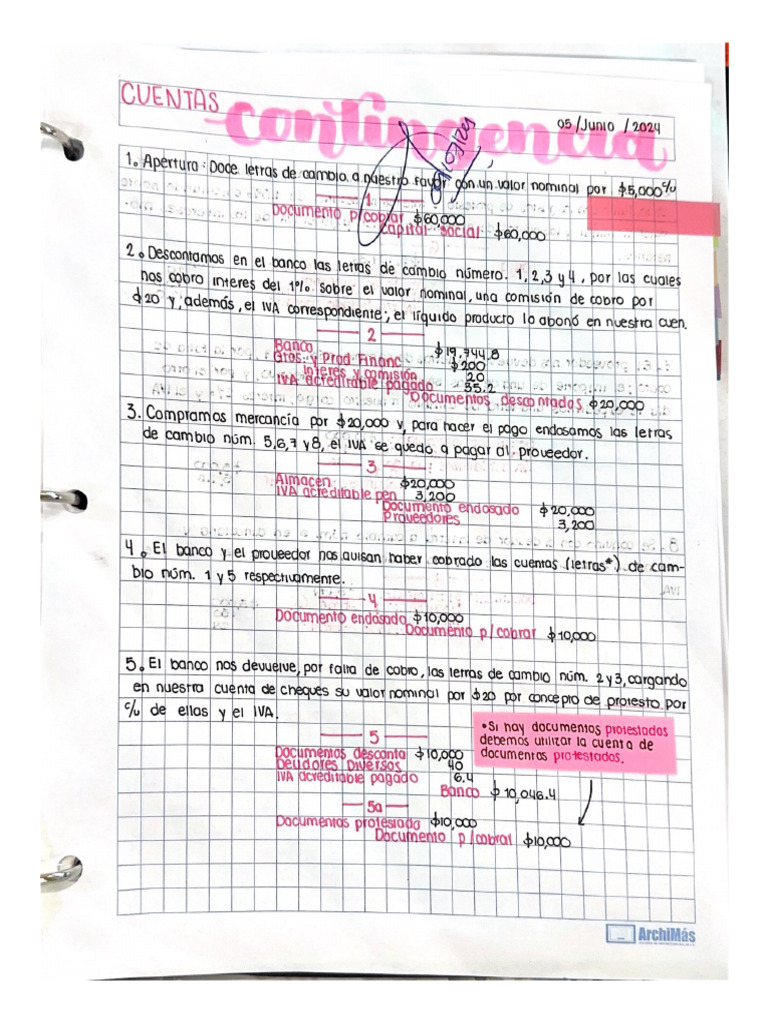 CUENTAS contingencia
05/Junio/2024
1. Apertura: Doce letras de cambio a nuestro favor con un valor nominal por $5,000 c/u
1
Documento p/cobrar $60,000
Capital social $60,000
2. Descontamos en el banco las letras de cambio número. 1, 2, 3 y 4, por las cuales
nos cobro interes del 1% sobre el valor nominal, una comisión de cobro por
$20 y, además, el IVA correspondiente; el líquido producto lo abonó en nuestra cuen.
2
Banco $19,744.8
Gtos. y Prod. Financ $200
Interes y comisión 20
IVA acreditable pagado 35.2
Documentos descontados $20,000
3. Compramos mercancía por $20,000 y, para hacer el pago endosamos las letras
de cambio núm. 5,6,7 y 8, el IVA se quedo a pagar al proveedor.
3
Almacen $20,000
IVA acreditable pen 3,200
Documento endosado $20,000
Proveedores 3,200
4. El banco y el proveedor nos avisan haber cobrado las cuentas (letras*) de cam-
bio núm. 1 y 5 respectivamente.
4
Documento endosado $10,000
Documento p/cobrar $10,000
5. El banco nos devuelve, por falta de cobro, las letras de cambio núm. 2 y 3, cargando
en nuestra cuenta de cheques su valor nominal por $20 por concepto de protesto por
c/u de ellas y el IVA.
•Si hay documentos protestados
debemos utilizar la cuenta de
documentos protestados.
5
Documentos desconta $10,000
Deudores Diversos 40
IVA acreditable pagado 6.4
Banco $10,046.4
5a
Documentos protestada $10,000
Documento p/cobrar $10,000
ArchiMás